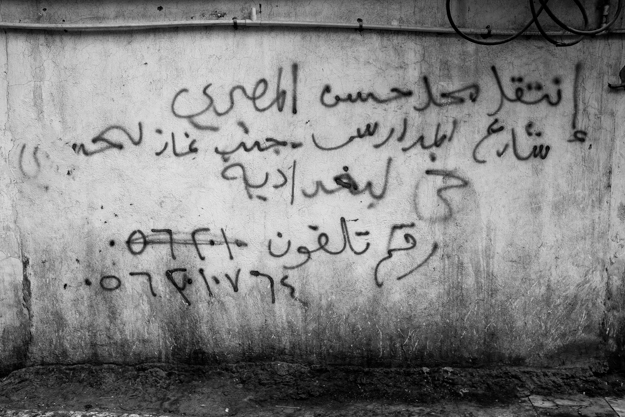 إنتقل محل حسن المصري
إ شارع المدارس . جنب غاز
حي لبغدادية
رقم تلفون ٠٥٦٢٠١٠
٠٥٦٢٠١٠٧٦٤